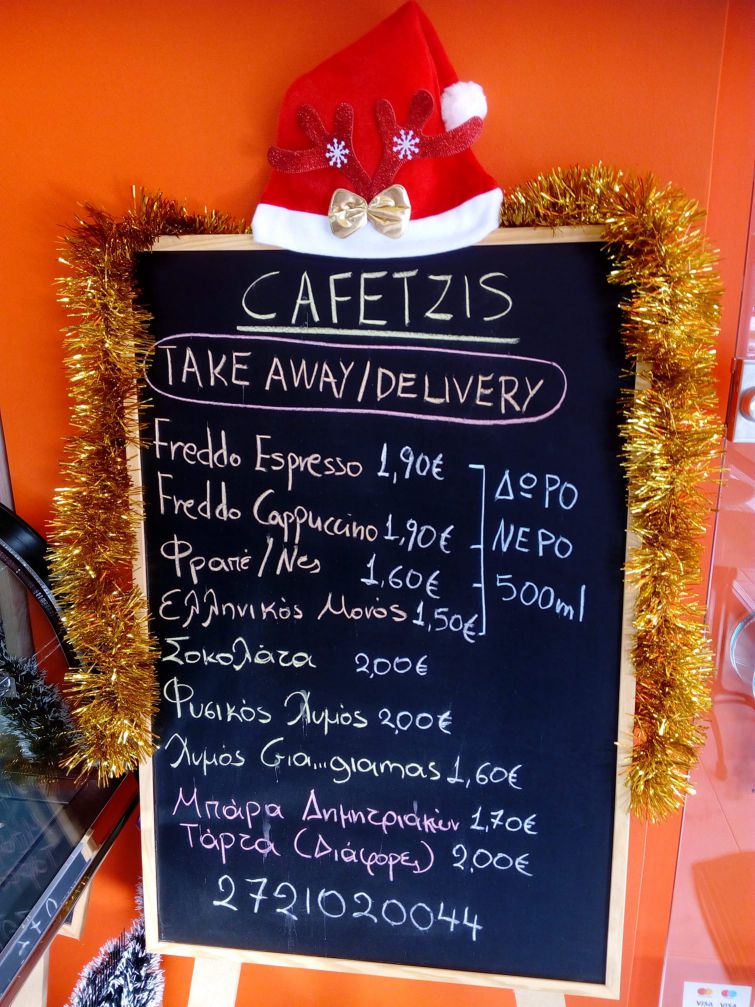 CAFETZIS
TAKE AWAY/DELIVERY
Freddo Espresso 1,90€
Freddo Cappuccino 1,90€
Φραπέ/Νες 1,60€
Ελληνικός Μονός 1,50€
ΔΩΡΟ
ΝΕΡΟ
500ml
Σοκολάτα 2,00€
Φυσικός Χυμός 2,00€
Χυμός Gia...giamas 1,60€
Μπάρα Δημητριακών 1,70€
Τάρτα (Διάφορες) 2,00€
2721020044
VISA VISA